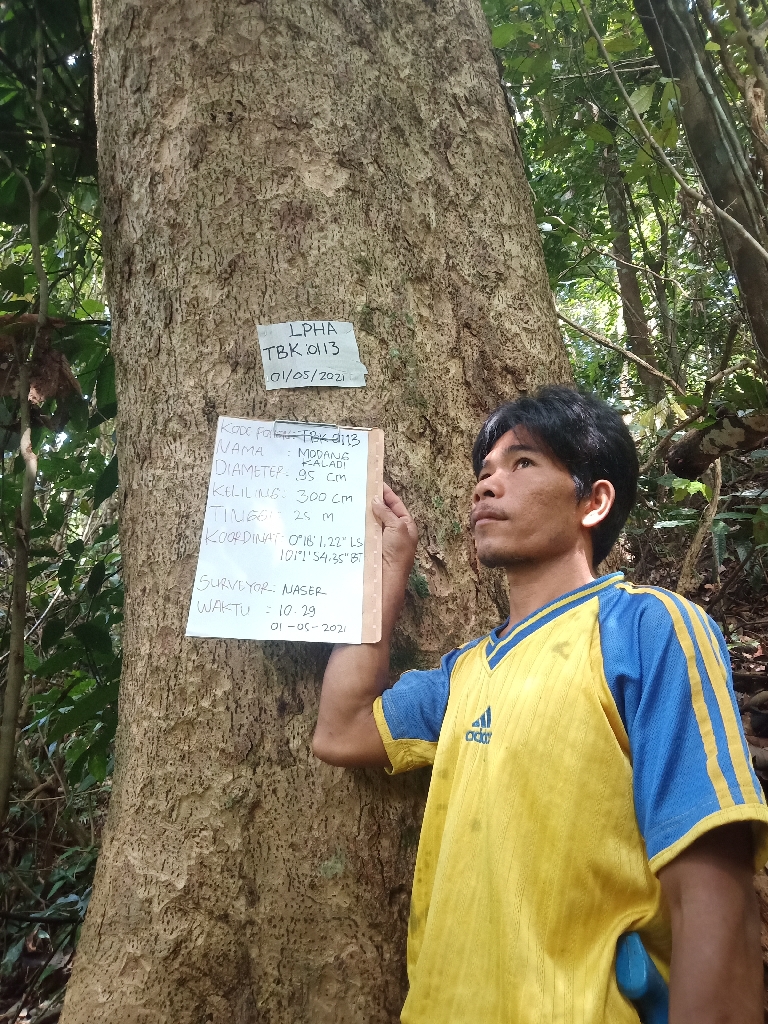 LPHA
TBK:0113
01/05/2021
KODE POHON: TBK 0113
NAMA : MODANG
KALADI
DIAMETER: 95 CM
KELILING: 300 CM
TINGGI: 25 M
KOORDINAT: 0°18'1.22" LS
101°1'54.35" BT
SURVEYOR: NASER
WAKTU : 10.29
01-05-2021
adidas